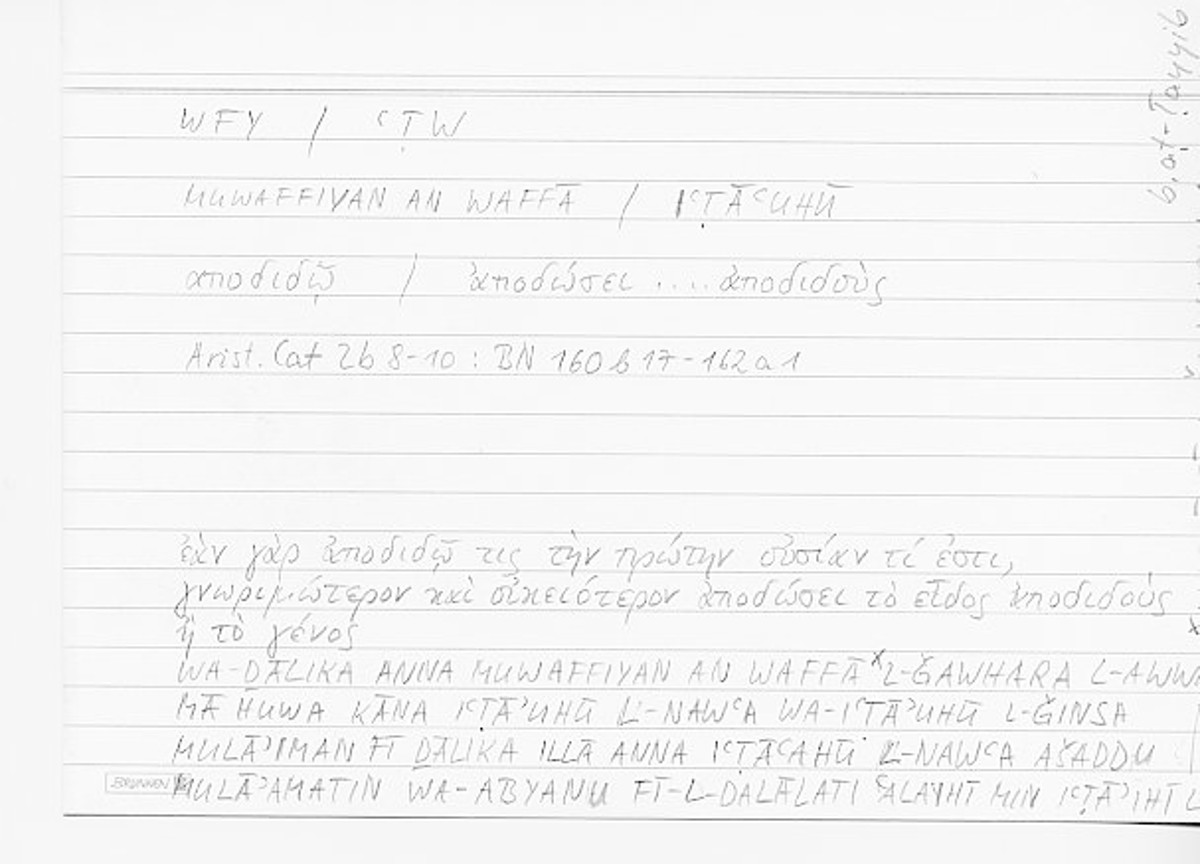 WFY / ʿṬW
MUWAFFIYAN AN WAFFĀ / IʿṬĀʿUHŪ
αποδιδῷ / ἀποδώσει .... ἀποδιδοὺς
Arist. Cat 2b 8-10 : BN 160b17-162a1
ἐὰν γὰρ ἀποδιδῷ τις τὴν πρώτην οὐσίαν τί ἐστι,
γνωριμώτερον καὶ οἰκειότερον ἀποδώσει τὸ εἶδος ἀποδιδοὺς
ἢ τὸ γένος
WA-ḎĀLIKA ANNA MUWAFFIYAN AN WAFFĀ L-ǦAWHARA L-AWWA
MĀ HUWA KĀNA IʿṬĀʾUHŪ L-NAWʿA WA-IʿṬĀʾUHŪ L-ǦINSA
MULĀʾIMAN FĪ ḎĀLIKA ILLĀ ANNA IʿṬĀʿAHŪ L-NAWʿA AŠADDU
MULĀʾAMATIN WA-ABYANU FĪ-L-DALĀLATI ʿALAYHĪ MIN IʿṬĀʾIHĪ L
BRUNNEN
b. aṭ-Ṭayyib